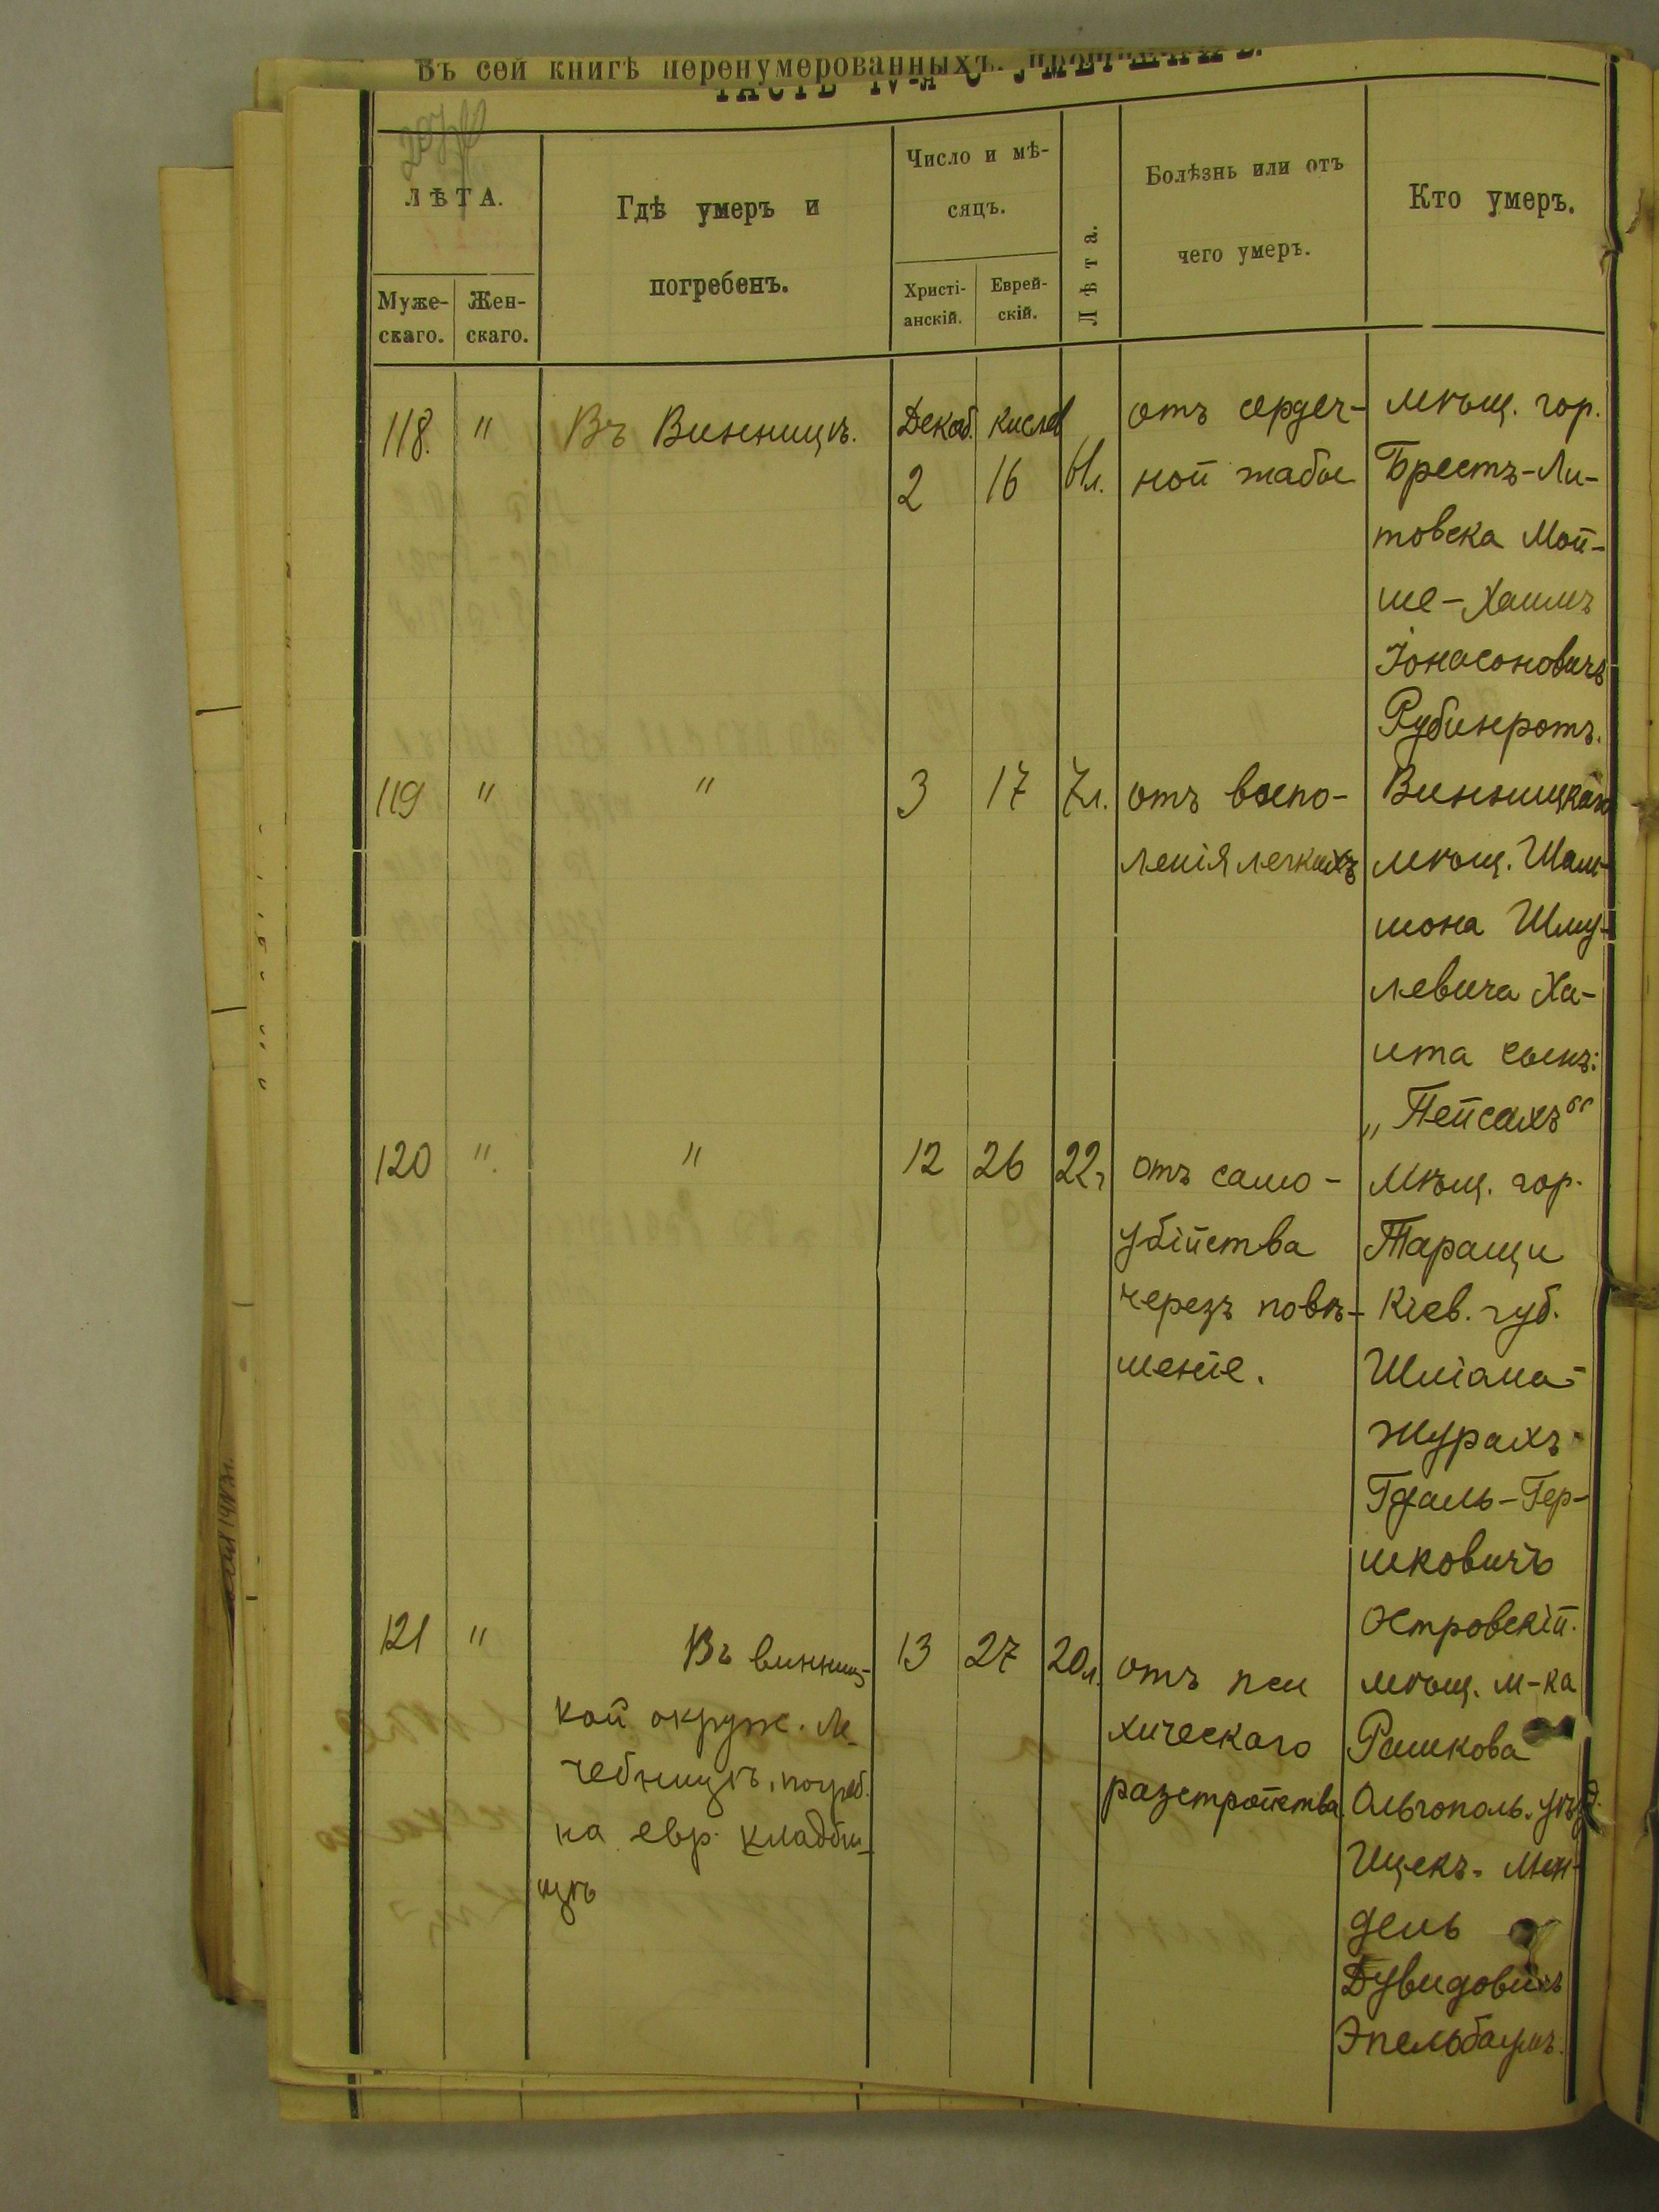 Въ сей книгѣ перенумерованныхъ.
ЧАСТЬ IV-я О УМЕРШИХЪ.
ЛѢТА.
Муже-
скаго.
Жен-
скаго.
Гдѣ умеръ и
погребенъ.
Число и мѣ-
сяцъ.
Христі-
анскій.
Еврей-
скій.
Лѣта.
Болѣзнь или отъ
чего умеръ.
Кто умеръ.
118. " Въ Винницѣ. Декаб. Кислев
2 16 61л.
отъ сердеч-
ной жабы
мѣщ. гор.
Брестъ-Ли-
товска Мой-
ше-Хаимъ
Іонасоновичъ
Рубинротъ.
119 " " 3 17 7л.
отъ воспо-
ленія легкихъ
Винницкаго
мѣщ. Шам-
шона Шму-
левича Ха-
ита сынъ:
„Пейсахъ“
120 " " 12 26 22г
отъ само-
убійства
черезъ повѣ-
шеніе.
Мѣщ. гор.
Таращи
Кіев. губ.
Шліама-
Журахъ
Гдаль-Гер-
шковичъ
Островскій.
121 "
Въ винниц-
кой окруж. Ле-
чебницѣ, погреб.
на евр. кладби-
щѣ
13 27 20л.
отъ пси
хическаго
разстройства.
мѣщ. м-ка
Рашкова
Ольгополь. уѣзд.
Ицекъ-Мен-
дель
Дувидовичъ
Эпельбаумъ.